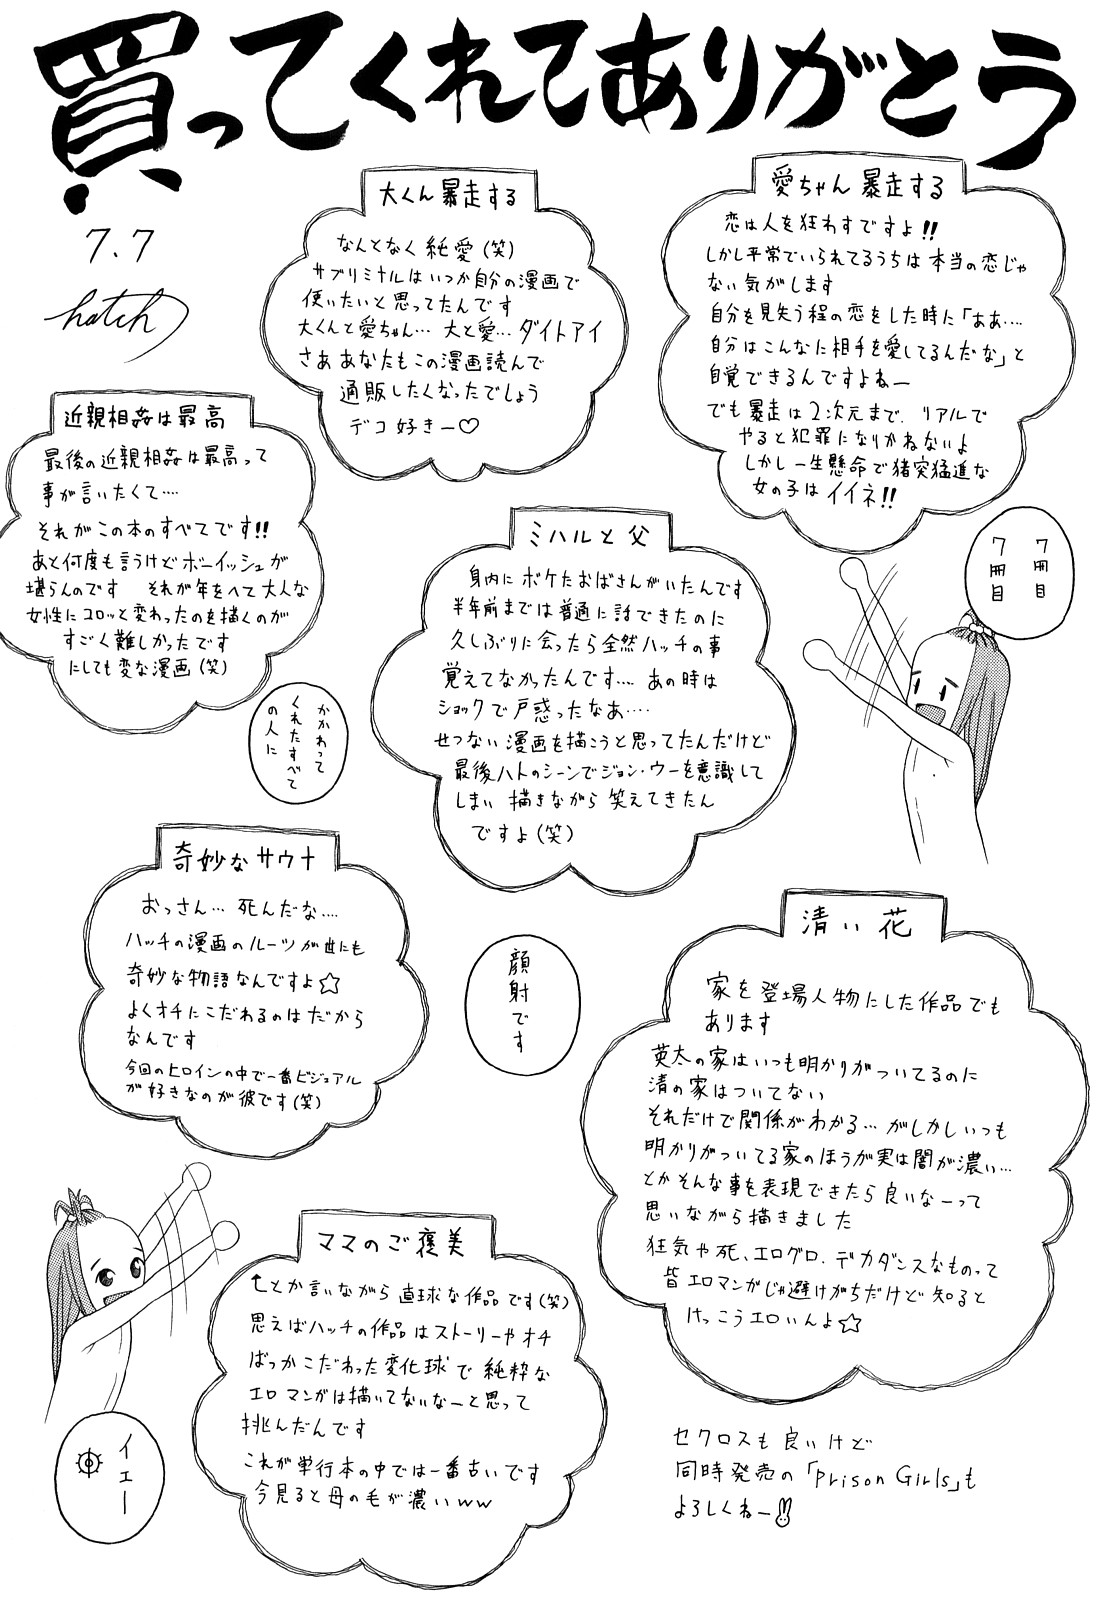 買ってくれてありがとう
7.7
hatch
愛ちゃん暴走する
恋は人を狂わすですよ!!
しかし平常でいられてるうちは本当の恋じゃ
ない気がします
自分を見失う程の恋をした時に「ああ….
自分はこんなに相手を愛してるんだな」と
自覚できるんですよねー
でも暴走は2次元まで、リアルで
やると犯罪になりかねないよ
しかし一生懸命で猪突猛進な
女の子はイイネ!!
大くん暴走する
なんとなく純愛(笑)
サブリミナルはいつか自分の漫画で
使いたいと思ってたんです
大くんと愛ちゃん… 大と愛… ダイトアイ
さああなたもこの漫画読んで
通販したくなったでしょう
デコ好きー♡
近親相姦は最高
最後の近親相姦は最高って
事が言いたくて….
それがこの本のすべてです!!
あと何度も言うけどボーイッシュが
堪らんのです それが年をへて大人な
女性にコロッと変わったのを描くのが
すごく難しかったです
にしても変な漫画(笑)
7冊目
7冊目
ミハルと父
身内にボケたおばさんがいたんです
半年前までは普通に話できたのに
久しぶりに会ったら全然ハッチの事
覚えてなかったんです…. あの時は
ショックで戸惑ったなあ….
せつない漫画を描こうと思ってたんだけど
最後ハトのシーンでジョン・ウーを意識して
しまい 描きながら笑えてきたん
ですよ(笑)
かかわって
くれたすべて
の人に
奇妙なサウナ
おっさん… 死んだな….
ハッチの漫画のルーツが世にも
奇妙な物語なんですよ☆
よくオチにこだわるのはだから
なんです
今回のヒロインの中で一番ビジュアル
が好きなのが彼です(笑)
顔射です
清い花
家を登場人物にした作品でも
あります
英太の家はいつも明かりがついてるのに
清の家はついてない
それだけで関係がわかる… がしかしいつも
明かりがついてる家のほうが実は闇が濃い…
とかそんな事を表現できたら良いなーって
思いながら描きました
狂気や死、エログロ、デカダンスなものって
皆エロマンガじゃ避けがちだけど知ると
けっこうエロいんよ☆
ママのご褒美
↑とか言いながら直球な作品です(笑)
思えばハッチの作品はストーリーやオチ
ばっかこだわった変化球で純粋な
エロマンガは描いてないなーと思って
挑んだんです
これが単行本の中では一番古いです
今見ると母の毛が濃いww
イェー
セクロスも良いけど
同時発売の「Prison Girls」も
よろしくねー